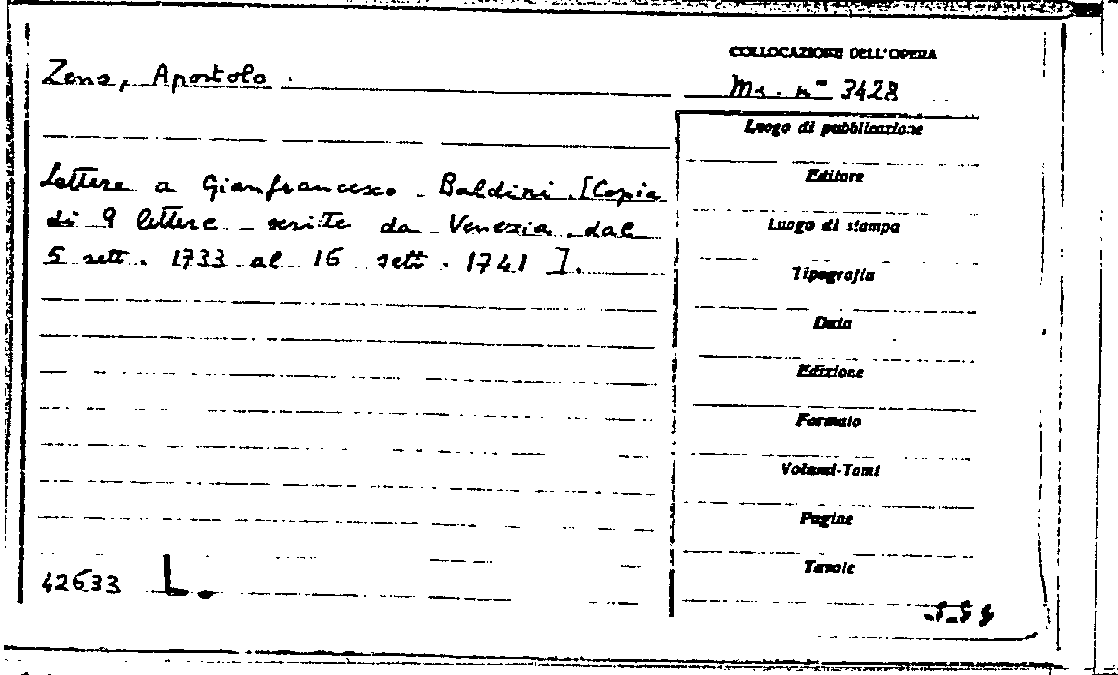 COLLOCAZIONE DELL'OPERA
Zeno, Apostolo.
Ms. nº 3428
Luogo di pubblicazione
Lettere a Gianfrancesco Baldini [Copia
Editore
di 9 lettere scritte da Venezia dal
Luogo di stampa
5 sett. 1733 al 16 sett. 1741].
Tipografia
Data
Edizione
Formato
Volumi-Tomi
Pagine
Tavole
42633 L.